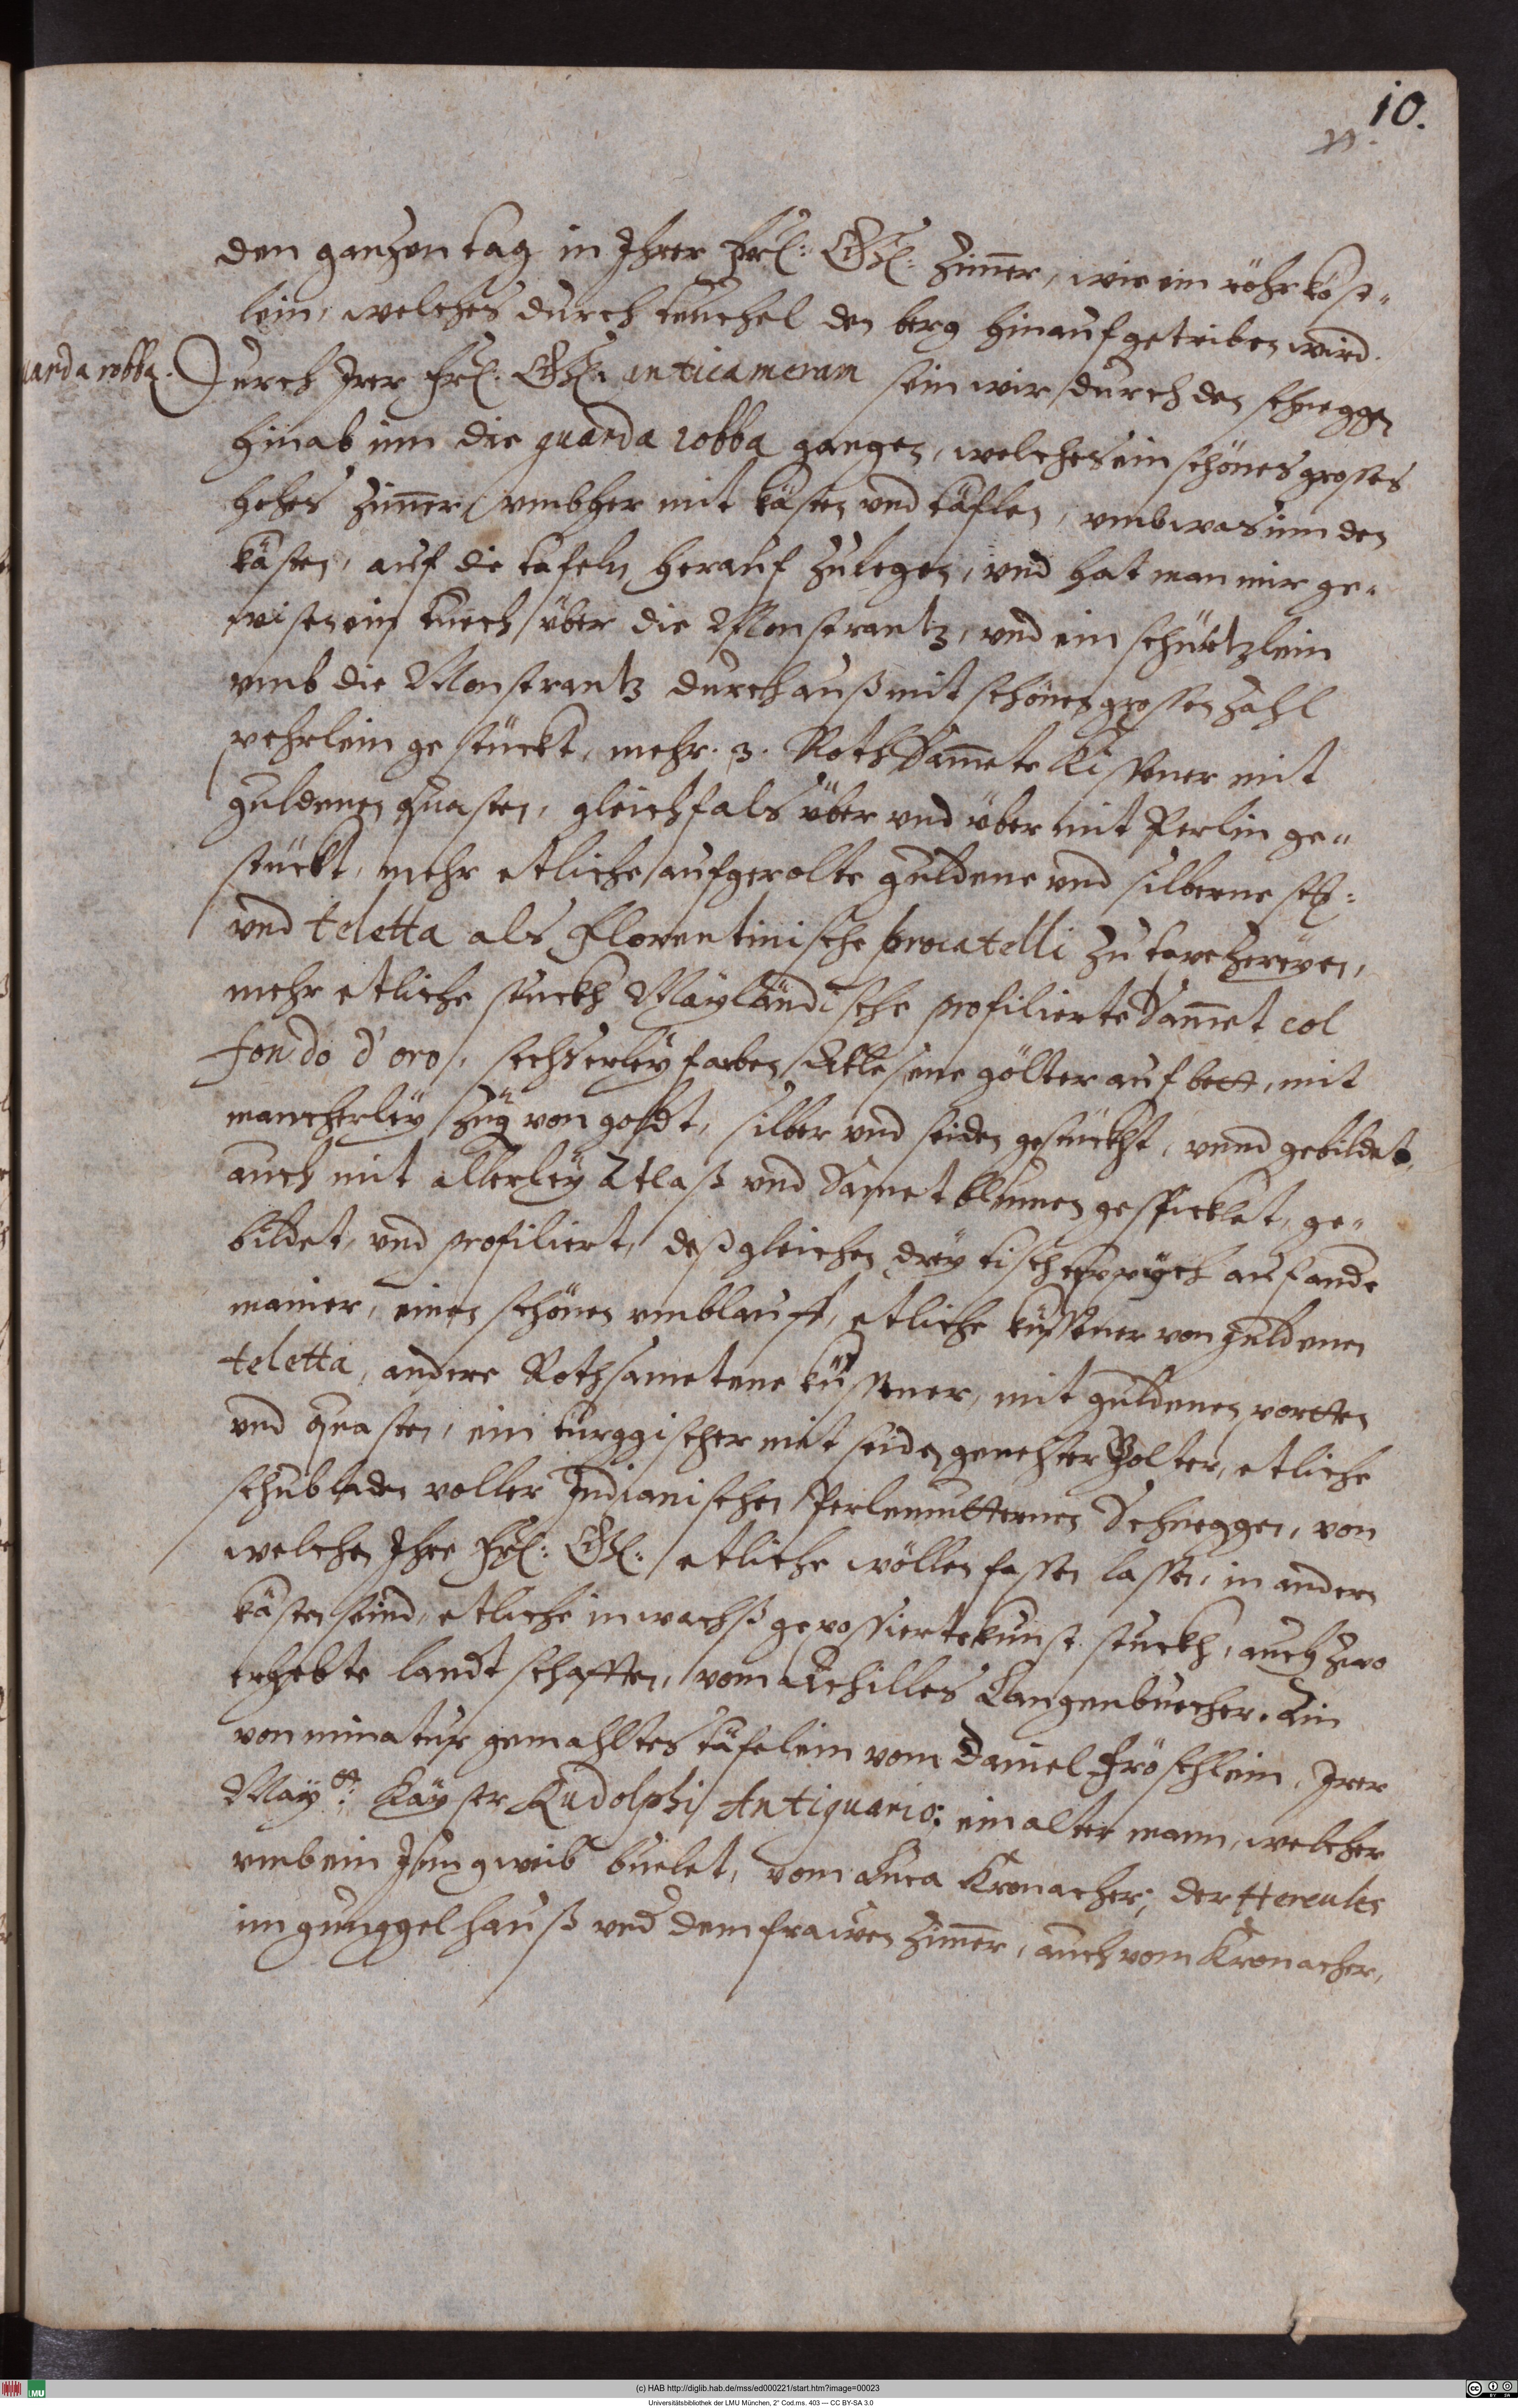 10.
den ganzen tag in Ihrer Frl: Gl: Zimer, wie ein röhr kä st-
lein, welches durch teuchel den berg hinauf getriben wird.
uarda robba. Durch Irer Frl: Gl: anticameram sein wir durch den schneggen
hinab inn die guarda robba gangen, welches ein schönes grosses
hohes Zimer, umbher mit kästen und taflen, umb was inn den
kästen, auf die tafeln herauf zulegen, und hat man mir ge-
wisen ein tuech über die Monstrantz, und ein schürtzlein
umb die Monstrantz durchauß mit schönen grossen zahl
pehrlein gestückt, mehr. 3. Roth Samete Kissener mit
guldenen quasten, gleichfals über und über mit Perlin ge-
stückt, mehr etliche aufgerolte guldene und silberne
und teletta als Florentinische procatelli zu tapezereyen,
mehr etliche stuckh Mayländische profilierte Samet col
fondo d'oro, sechserley farben Atlesene gölter auf bett, mit
mancherley zug von goldt, silber und seiden gestückht, unnd gebildet,
auch mit allerley Atlaß und Samet bluemen gespicklet, ge-
bildet, und profiliert, deßgleichen drey tischteppych auf ande
manier, einen schönen umblauff, etliche küssener von guldenen
teletta, andere Rothsametene küssener, mit guldenen portten
und quasten, ein türggischer mit seiden genehter Polter, etliche
schubladen voller Indianischen Perlemutternen Schneggen, von
welchen Ihre Frl: Gl: etliche wöllen fassen lassen, in andern
kästen seind, etliche in wachß gepossierte kunst stuckh, auch zwo
erhebte landtschafften, vom Achilles Langenbuecher. Ein
von minatur gemahltes täfelein vom Daniel Fröschlein, Irer
Maytt: Kayser Rudolphi Antiquario; ein alter mann, welcher
umb ein Jung weib buelet, vom Luca Kronacher; der Hercules
im gunggelhauß und dem frawen Zimer, auch vom Kronacher,
(c) HAB http://diglib.hab.de/mss/ed000221/start.htm?image=00023
Universitätsbibliothek der LMU München, 2° Cod.ms. 403 — CC BY-SA 3.0